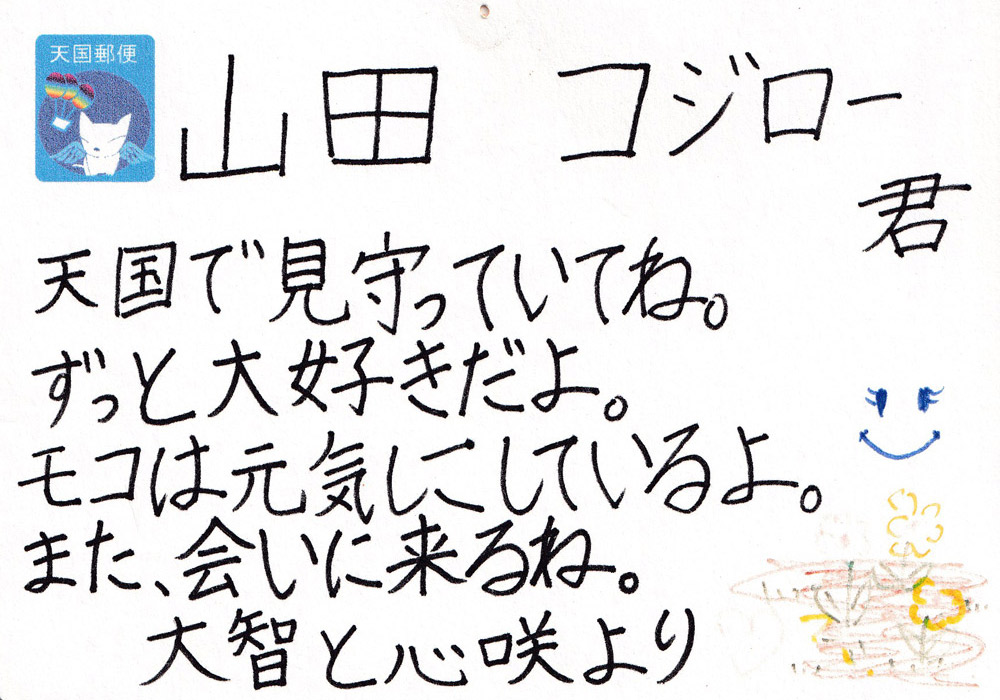 天国郵便
山田 コジロー
君
天国で見守っていてね。
ずっと大好きだよ。
モコは元気にしているよ。
また、会いに来るね。
大智と心咲より